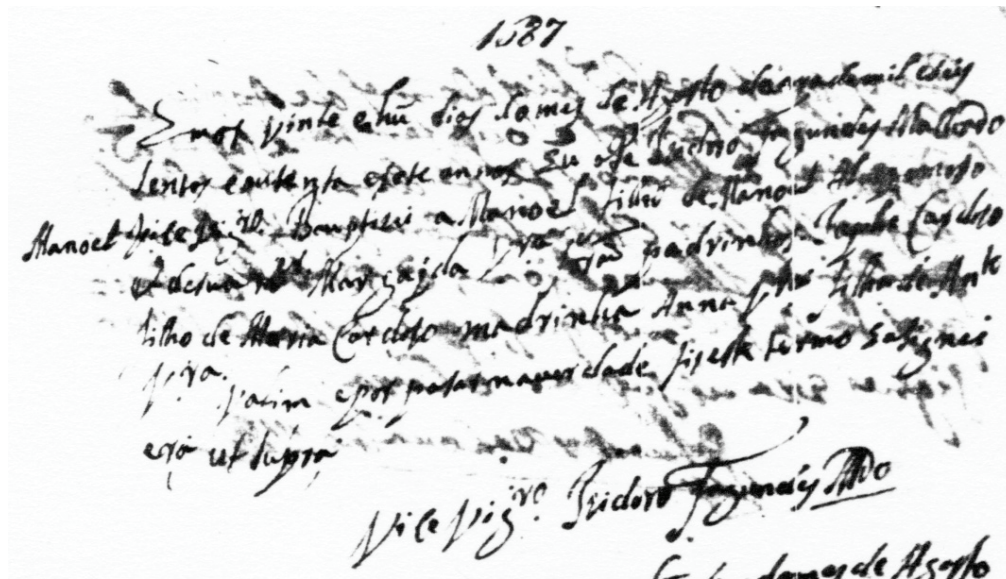 1587
Em os vinte e hũ dias do mes de Agosto da era de mil e seis
sentos e outenta e sete annos Eu o Pe Isidoro Fagundes Machado
Manoel Vice Vigro. Bauptizei a Manoel filho de Manoel
e de sua mer Margaida Pra forã padrinhos Cardoso
filho de Maria Cardoso madrinha Anna filha de Anto
Pra. e por pasar na verdade fis este termo e asignei
era ut supra
Vice Vigro. Isidoro Fagundes Mdo
do mes de Agosto